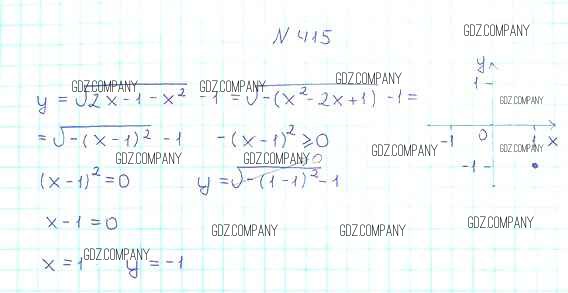 N 415
GDZ.COMPANY
y = √(2x - 1 - x²) - 1 = √(-(x² - 2x + 1)) - 1 =
GDZ.COMPANY GDZ.COMPANY GDZ.COMPANY
= √(-(x - 1)²) - 1 -(x - 1)² ≥ 0
GDZ.COMPANY GDZ.COMPANY GDZ.COMPANY
(x - 1)² = 0 y = √(-(1 - 1)²) - 1
0
x - 1 = 0
GDZ.COMPANY GDZ.COMPANY GDZ.COMPANY
x = 1 y = -1
GDZ.COMPANY
y
1
GDZ.COMPANY
-1 0 1 x
GDZ.COMPANY
-1